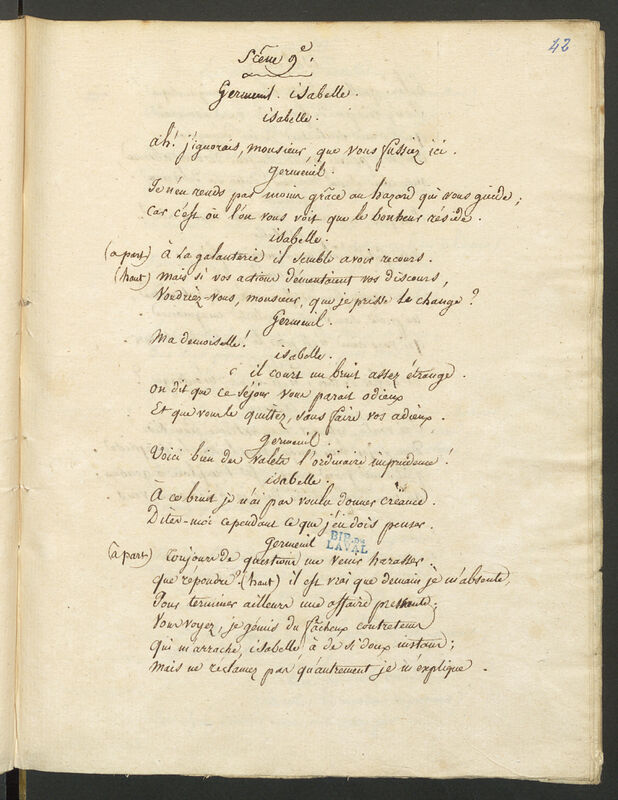 42
Scêne 9e.
Germeuil. isabelle.
isabelle.
ah! j'ignorais, monsieur, que vous fussiez ici.
germeuil.
Je n'en rends pas moins grâce au hazard qui vous guide;
car c'est où l'on vous voit que le bonheur réside.
isabelle.
(a part) à La galanterie il semble avoir recours.
(haut) mais si vos actions démentaient vos discours,
Voudriez-vous, monsieur, que je prisse le change?
Germeuil.
Mademoiselle!
isabelle.
il court un bruit assez étrange.
on dit que ce séjour vous parait odieux
Et que vous le quittez, sans faire vos adieux.
germeuil.
Voici bien des Valets l'ordinaire imprudence!
isabelle.
À ce bruit je n'ai pas voulu donner créance.
Dites-moi cependant ce que j'en dois penser.
germeuil
BIB. DE
LAVAL
(à part) Toujours de questions me veux harasser.
que répondre? (haut) il est vrai que demain je m'absente,
Pour terminer ailleurs une affaire pressante;
Vous voyez, je gémis du fâcheux contretems
Qui m'arrache, isabelle, à de si doux instans;
Mais ne réclamez pas qu'autrement je m'explique.